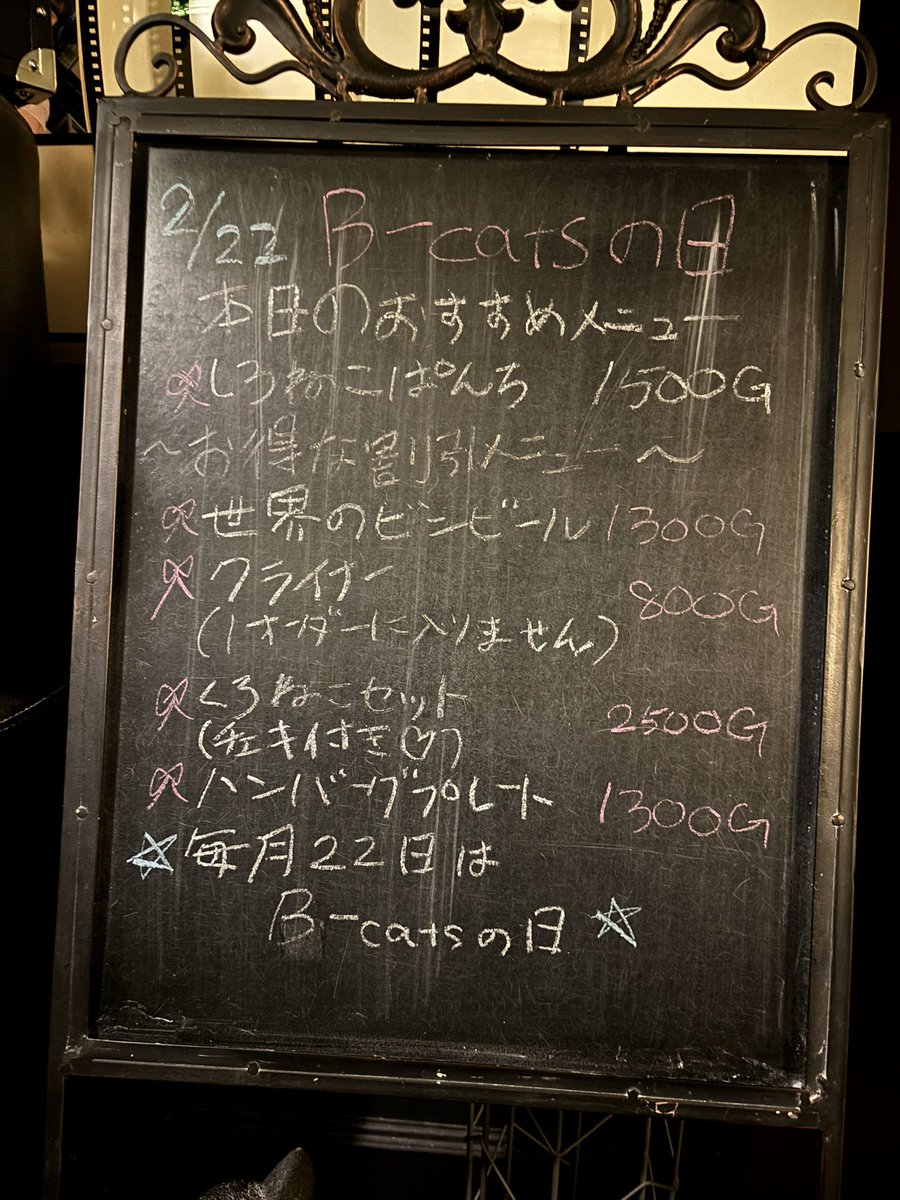 2/22 B-catsの日
本日のおすすめメニュー
しろねこぱんち 1500G
〜お得な割引メニュー〜
世界のビンビール 1300G
クライナー 800G
(1オーダーに入りません)
くろねこセット 2500G
(チェキ付き♡)
ハンバーグプレート 1300G
☆毎月22日は
B-catsの日☆